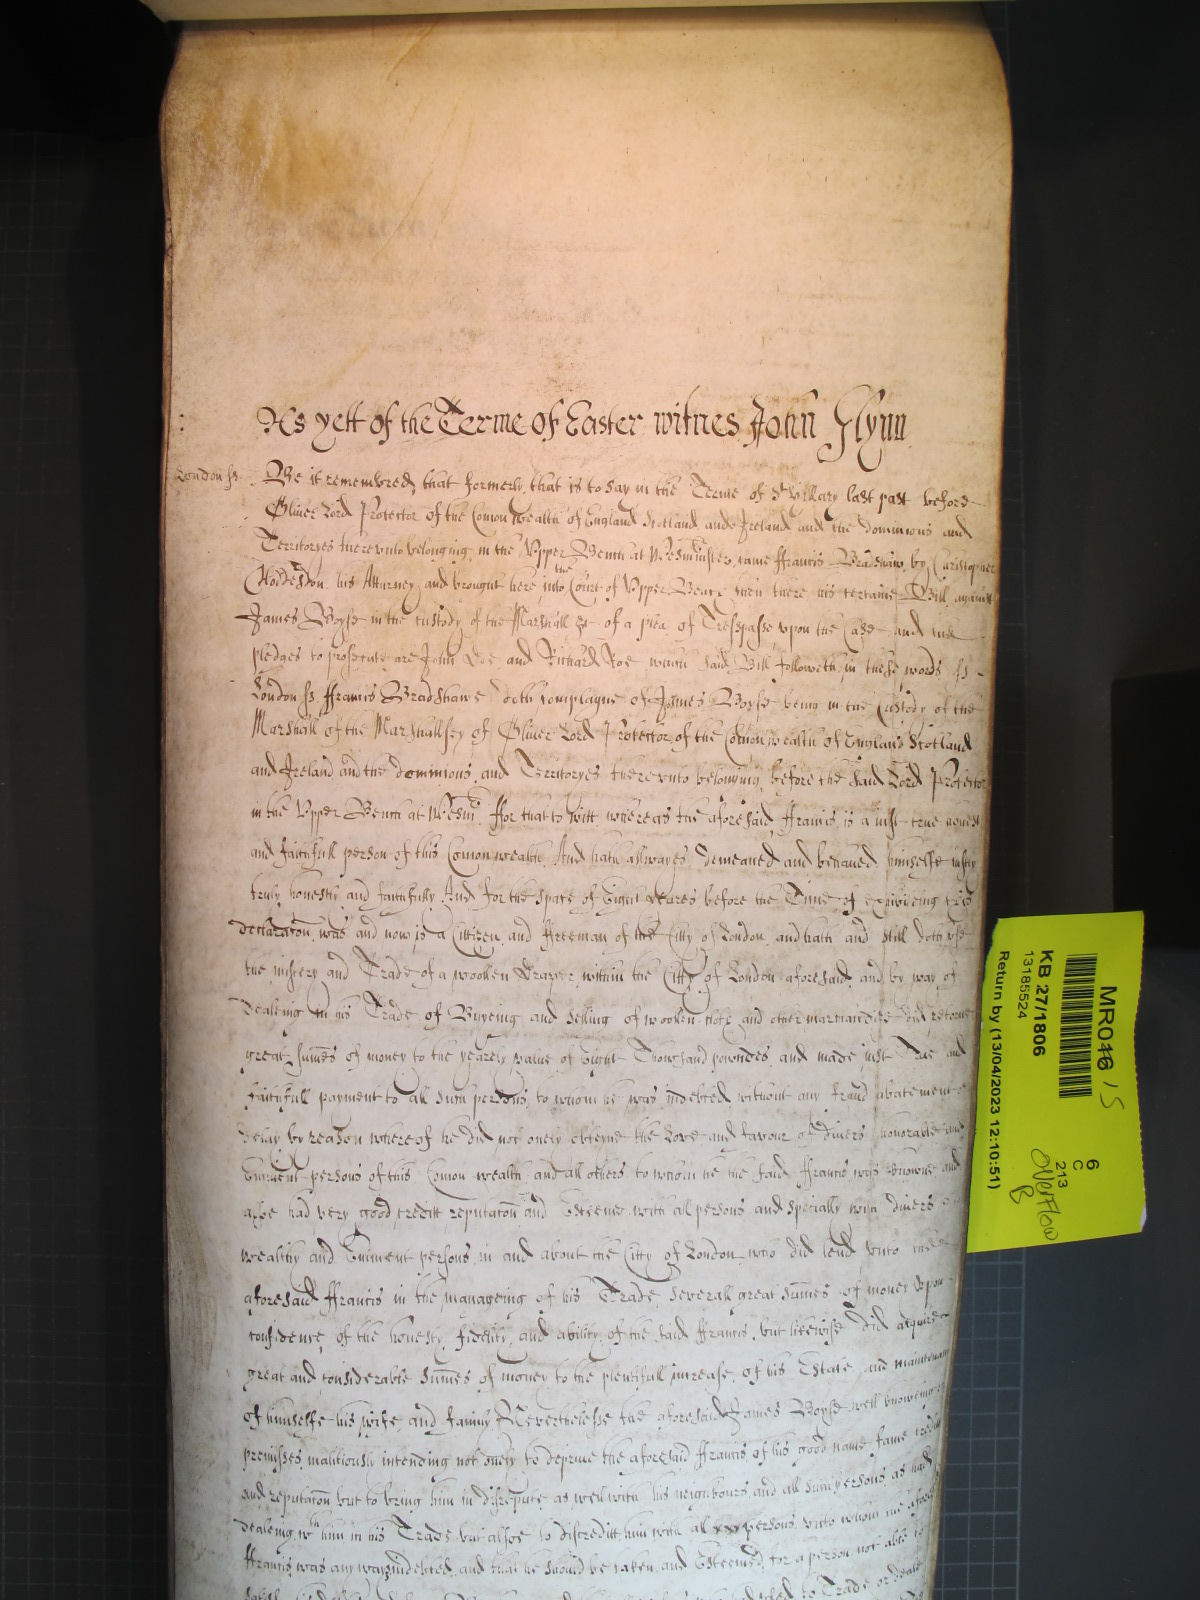 As yett of the Terme of Easter witnes John Glynn
London ss. Be it remembred, that formerly, that is to say in the Terme of St Hillary last past before
Oliver Lord Protector of the Comon Wealth of England Scotland and Ireland and the dominions and
Territoryes thereunto belonging, in the Upper Bench at Westminster, came ffrancis Bradshaw by Christopher
his Attorney, and brought here into the Court of Upper Bench then there his certaine Bill against
James Boyse in the custody of the Marshall &c of a plea of Trespasse upon the Case and the
pledges to prosecute are John Doe, and Richard Roe which said Bill followeth in these words ss
London ss ffrancis Bradshawe doth complayne of James Boyse being in the Custody of the
Marshall of the Marshallsey of Oliver Lord Protector of the Comon wealth of England Scotland
and Ireland and the dominions, and Territoryes thereunto belonging, before the said Lord Protector
in the Upper Bench at Westmr ffor that to witt, whereas the aforesaid ffrancis is a just true honest
and faithfull person of this Comon wealth, And hath allwayes demeaned and behaued himselfe justly
truly honestly and faithfully And for the space of Eight yeares before the Time of exhibiting this
declaraton, was and now is a Cittizen, and ffreeman of the Citty of London, and hath and still doth use
the mistery and Trade of a woollen draper within the Citty of London aforesaid, and by way of
dealeing in his Trade of Buyeing and selling of woollen cloth and other marchandize did returne
great summes of money to the yearely value of Eight Thousand powndes, and made just True and
faithfull payment to all such persons, to whom he was indebted without any fraud abatement
delay by reason whereof he did not onely obteyne the Love and favour of divers honorable and
Eminent persons of this Comon wealth and all others to whom he the said ffrancis was knowne and
alsoe had very good creditt reputaton and Esteeme with all persons and specially with divers
wealthy and Eminent persons in and about the Citty of London who did lend unto him the
aforesaid ffrancis in the manageing of his Trade severall great summes of money upon
confidence of the honesty fidelity and ability of the said ffrancis, but likewise did acquire
great and considerable summes of money to the plentifull increase of his Estate and maintenance
of himselfe his wife and family Neverthelesse the aforesaid James Boyse well knoweing
premisses, malitiously intending not onely to deprive the aforesaid ffrancis of his good name fame creditt
and reputaton but to bring him in disrepute as well with his neighbours and all such persons as had
dealeing wth him in his Trade but alsoe to discreditt him with all persons unto whom the aforesaid
ffrancis was any wayes indebted and that he should be taken and Esteemed for a person not able to
to Trade or deale
MR016 / S
KB 27/1806
13185524
Return by (13/04/2023 12:10:51)
6
C
213
Overflow
B